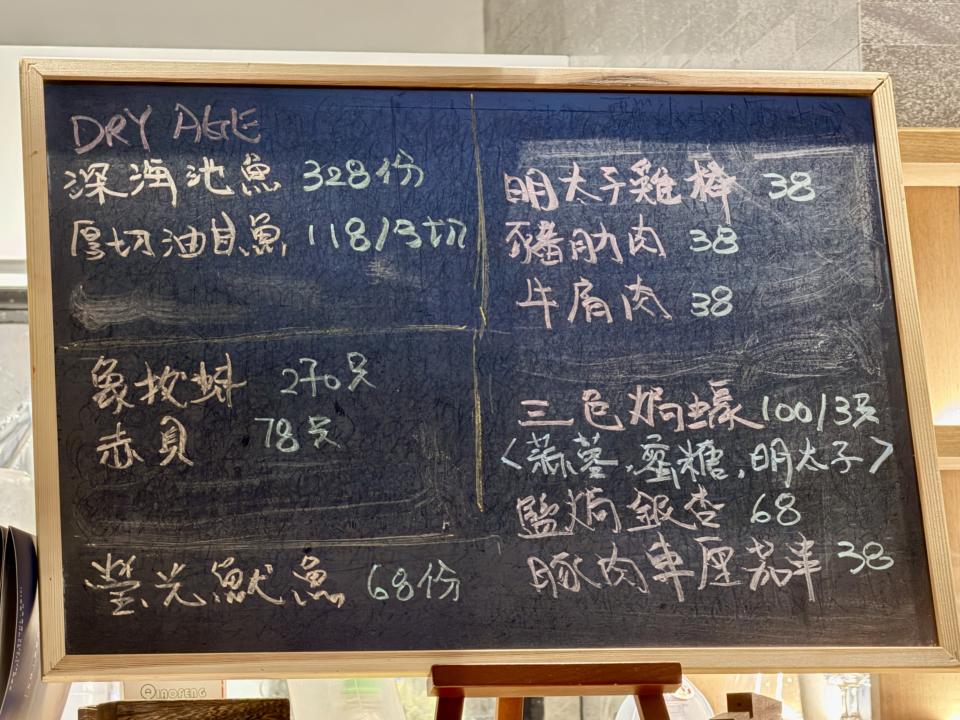 DRY AGE
深海池魚 328份
厚切油目魚 118/3切
象拔蚌 270只
赤貝 78只
螢光魷魚 68份
明太子雞棒 38
豬肋肉 38
牛肩肉 38
三色焗蠔 100/3只
<蒜蓉.蜜糖.明太子>
鹽焗銀杏 68
豚肉車厘茄串 38
INOFENG